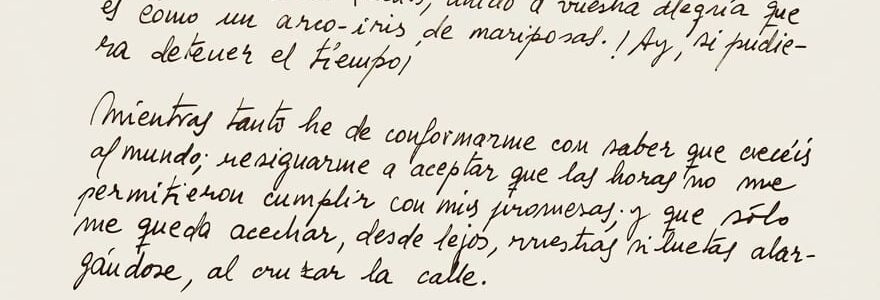 unido a vuestra alegría que
es como un arco-iris de mariposas. ! Ay, si pudie-
ra detener el tiempo¡
Mientras tanto he de conformarme con saber que crecéis
al mundo; resignarme a aceptar que las horas no me
permitieron cumplir con mis promesas; y que sólo
me queda acechar, desde lejos, vuestras siluetas alar-
gándose, al cruzar la calle.